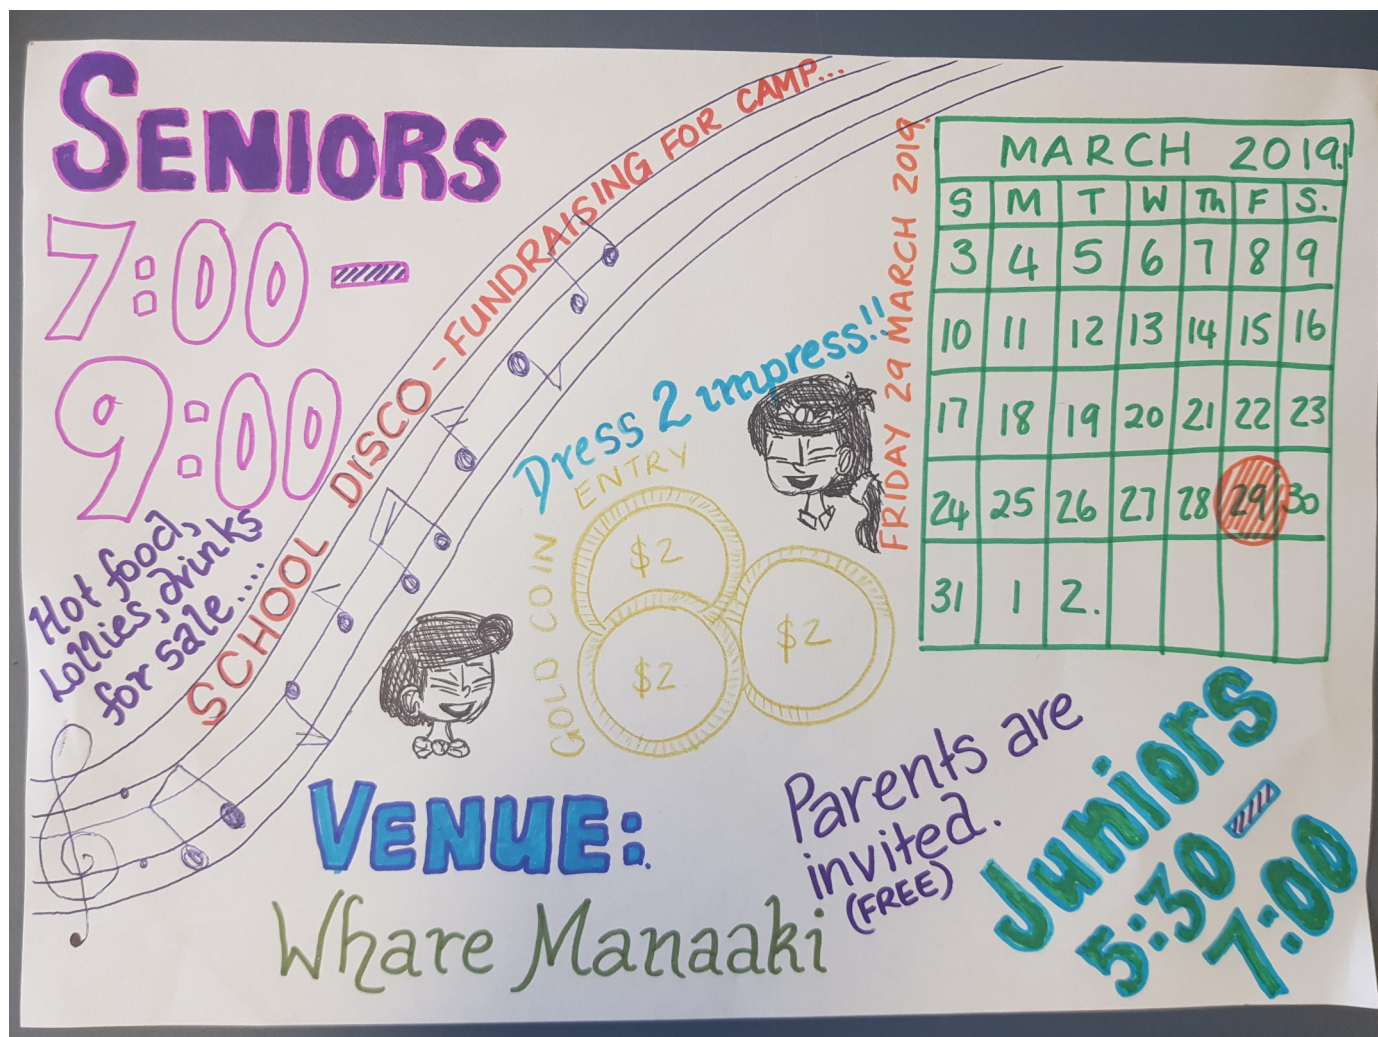 SENIORS
7:00 -
9:00
Hot food,
Lollies, drinks
for sale....
SCHOOL DISCO - FUNDRAISING FOR CAMP...
Dress 2 impress!!
ENTRY
GOLD COIN
$2
$2
$2
FRIDAY 29 MARCH 2019.
MARCH 2019.
S M T W Th F S.
3 4 5 6 7 8 9
10 11 12 13 14 15 16
17 18 19 20 21 22 23
24 25 26 27 28 29 30
31 1 2.
VENUE:
Whare Manaaki
Parents are
invited.
(FREE)
Juniors
5:30 -
7:00